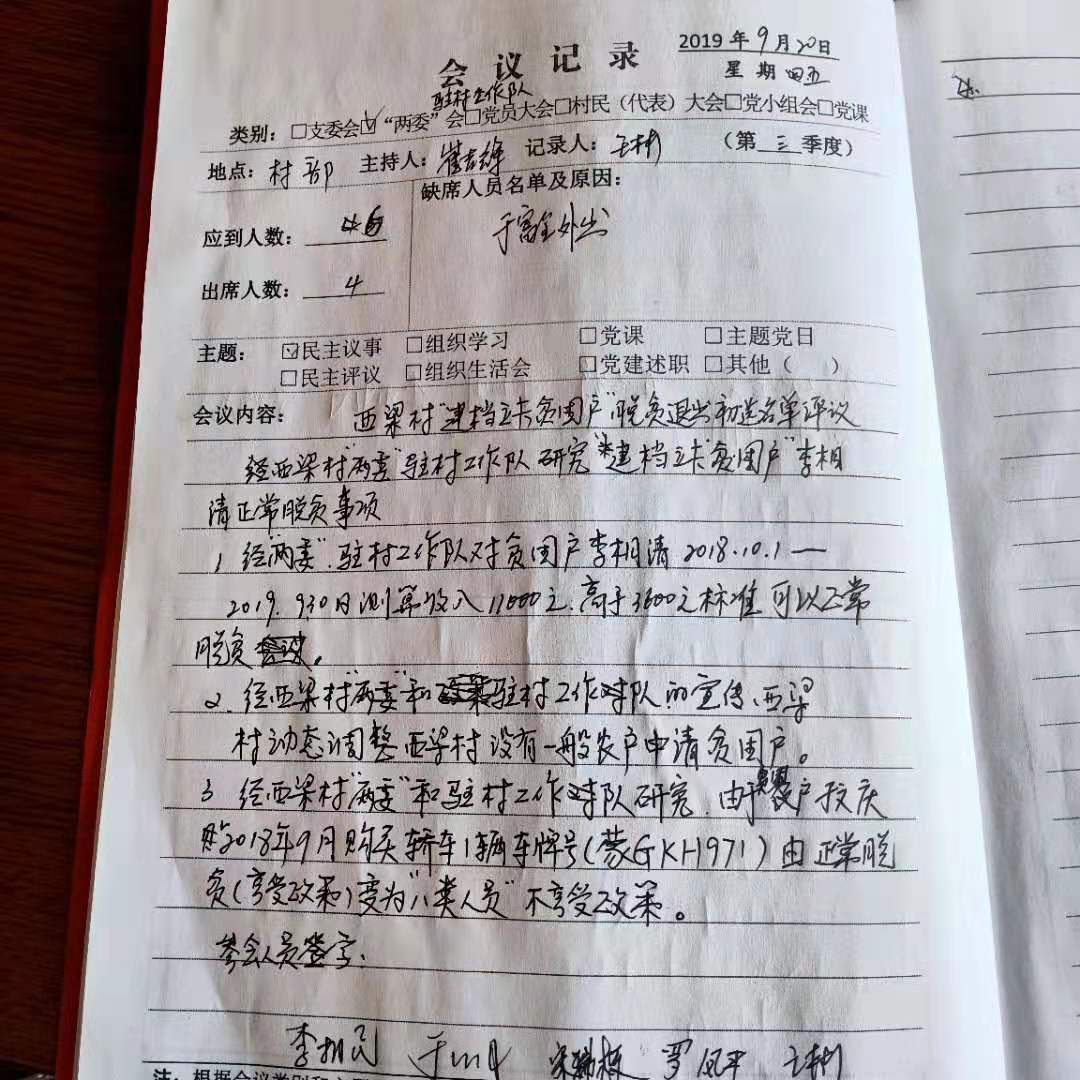 会议记录
2019年9月20日
星期五
驻村工作队
类别：□支委会☑“两委”会□党员大会□村民（代表）大会□党小组会□党课
地点：村部 主持人： 记录人：王彬 （第三季度）
应到人数：
缺席人员名单及原因：
于富全外出
出席人数：4
主题： ☑民主议事 □组织学习 □党课 □主题党日
□民主评议 □组织生活会 □党建述职 □其他（ ）
会议内容： 西梁村“建档立卡贫困户”脱贫退出初选名单评议
经西梁村“两委”驻村工作队研究“建档立卡贫困户”李相
清正常脱贫事项
1 经“两委”.驻村工作队对贫困户李相清2018.10.1—
2019.9.30日测算收入11000元.高于3600元标准可以正常
脱贫。
2.经西梁村“两委”和驻村工作队的宣传、西梁
村动态调整西梁村没有一般农户申请贫困户。
3 经西梁村“两委”和驻村工作队研究.由于户庆
2018年9月购买轿车1辆车牌号(蒙GKH971)由正常脱
贫(享受政策)变为“八类人员”不享受政策。
参会人员签字:
李相民 于 宋 罗凤平 王彬
注：根据会议类别和